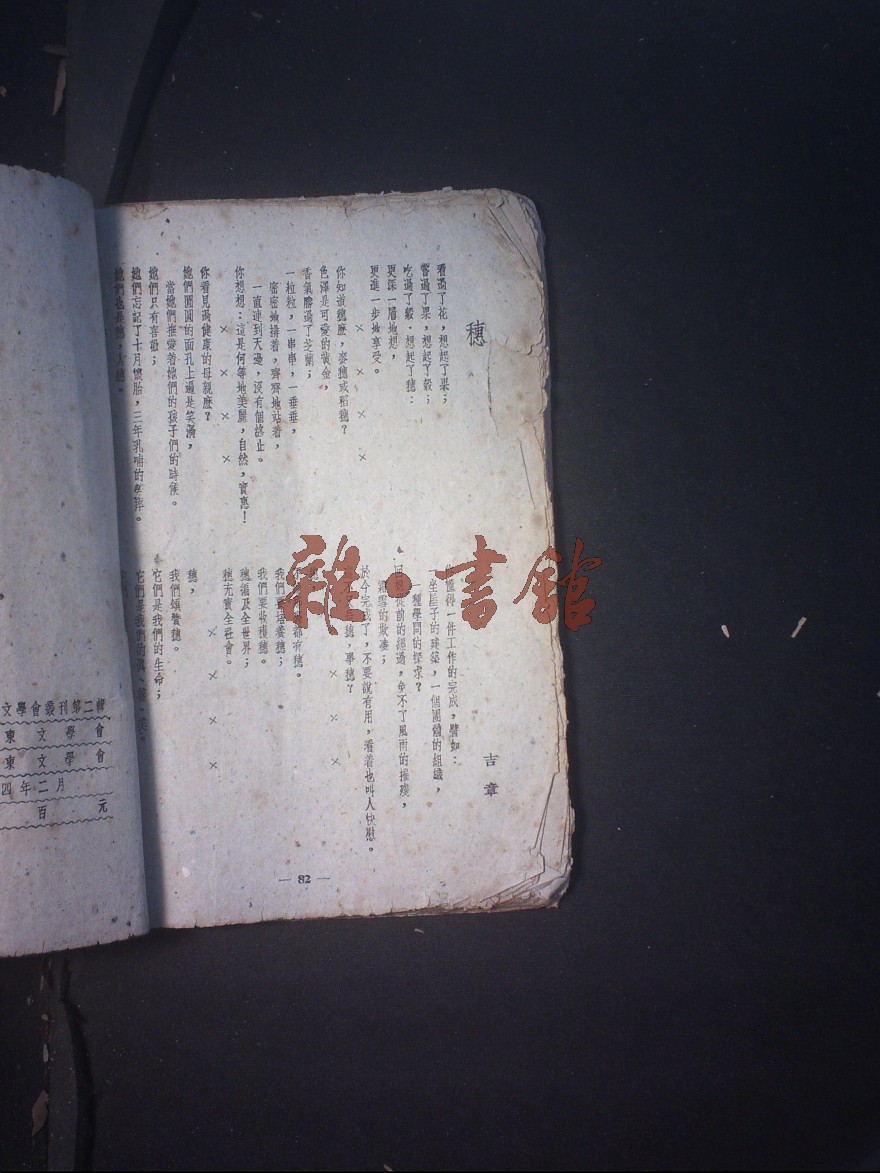 穗
吉章
看過了花，想起了果；
嘗過了果，想起了穀；
吃過了穀，想起了穗：
更深一層地想，
更進一步地享受。
× × × ×
你知道穗麽，麥穗或稻穗？
色澤是可愛的黃金，
香氣勝過了芝蘭；
一粒粒，一串串，一垂垂，
密密地排着，齊齊地站着，
一直連到天邊，沒有個終止。
你想想：這是何等地美麗，自然，實惠！
× × × ×
你看見過健康的母親麽？
她們團圓的面孔上遍是笑渦，
當她們撫愛着她們的孩子們的時候。
她們只有喜歡；
她們忘記了十月懷胎，三年乳哺的辛

懂得一件工作的完成，譬如：
一坐屋子的建築，一個團體的組織，
一種學問的探求？
回想從前的經過，免不了風雨的摧殘，
霜雪的欺凌；
於今完成了，不要說有用，看着也叫人快慰。
穗，學穗？
× × × ×
都有穗。
我們要培養穗；
我們要收穫穗。
穗徧及全世界；
穗充實全社會。
× × × ×
穗，
我們頌贊穗。
它們是我們的生命；
它們是我們的
— 82 —
文學會叢刊第二輯
東文學會
東文學會
四年二月
百元
雜·書館